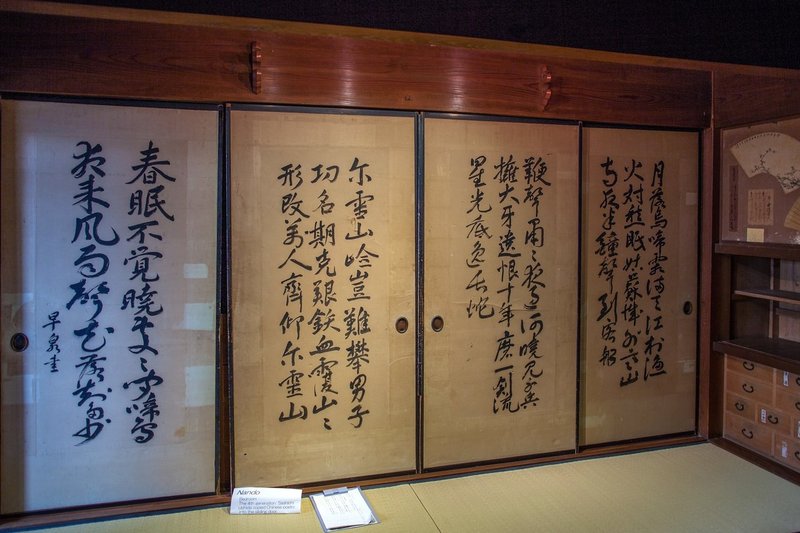 月落烏啼霜満天江村漁
火対愁眠姑蘇城外寒山
寺夜半鐘聲到客船
鞭聲粛々夜過河暁見千兵
擁大牙遺恨十年磨一剣流
星光底逸長蛇
尓霊山嶮豈難攀男子
功名期克艱鉄血覆山々
形改萬人齊仰尓霊山
春眠不覚暁處々聞啼鳥
夜来風雨聲花落知多少
早泉書
Nando
Bedroom
The 4th generation
copied Chinese poetry
the sliding door